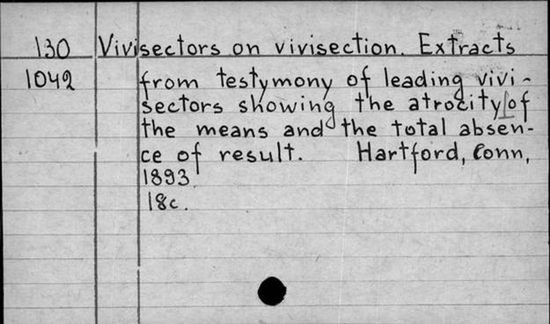 130 Vivisectors on vivisection. Extracts
1042 from testymony of leading vivi-
sectors showing the atrocity of
the means and the total absen-
ce of result. Hartford, Conn,
1893.
18c.